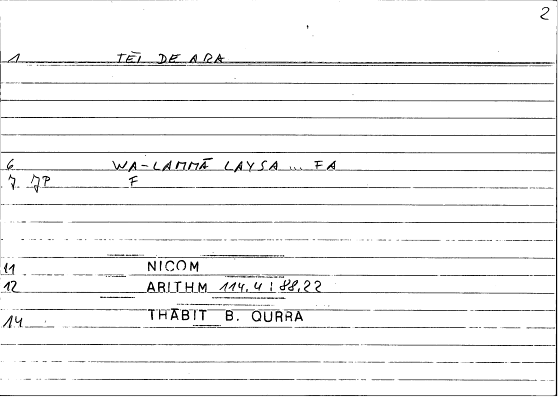 2
1 TEĪ DE ARA
6 WA-LAMMĀ LAYSA ... FA
7 JP F
11 NICOM
12 ARITHM 114,4 : 88,22
14 THĀBIT B. QURRA